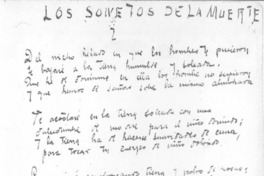 LOS SONETOS DE LA MUERTE
1
Del nicho helado en que los hombres te pusieron,
te bajaré a la tierra humilde y soleada.
Que he de dormirme en ella los hombres no supieron
y que hemos de soñar sobre la misma almohada
Te acostaré en la tierra soleada con una
dulcedumbre de madre para el niño dormido,
y la tierra ha de hacerse suavidades de cuna,
para tocar tu cuerpo de niño dolorido
tierra y polvo de rosas,